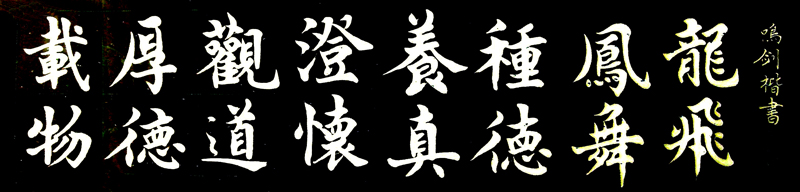 鳴剑楷書
龍飛
鳳舞
種德
養真
澄懷
觀道
厚德
載物